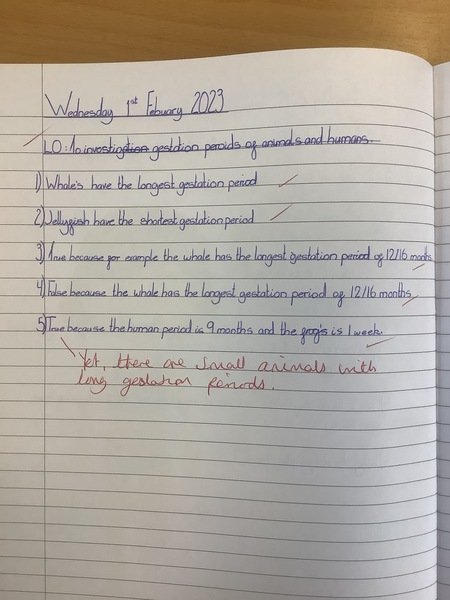 Wednesday 1st Febuary 2023
LO: To investigation gestation peroids of animals and humans.
1) Whale's have the longest gestation period
2) Jellyfish have the shortest gestation period
3) True because for example the whale has the longest gestation period of 12/16 months
4) False because the whale has the longest gestation period of 12/16 months
5) True because the human period is 9 months and the frog's is 1 week.
Yet, there are small animals with
long gestation periods.